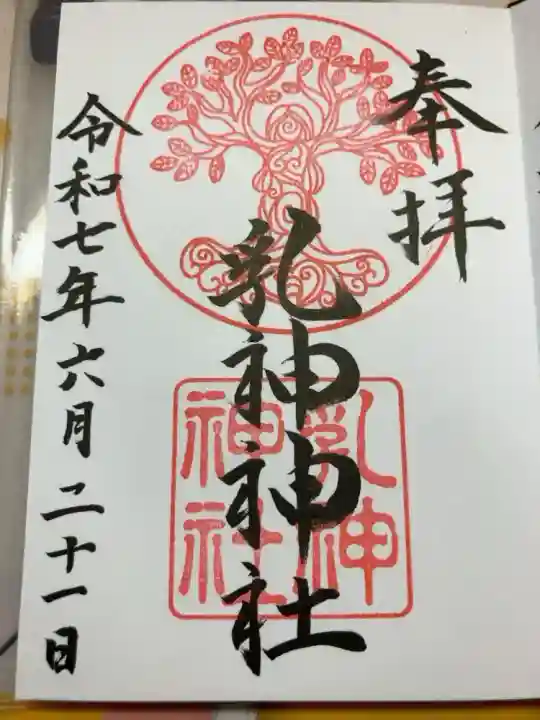 奉拝
乳神神社
乳神
神社
令和七年六月二十一日